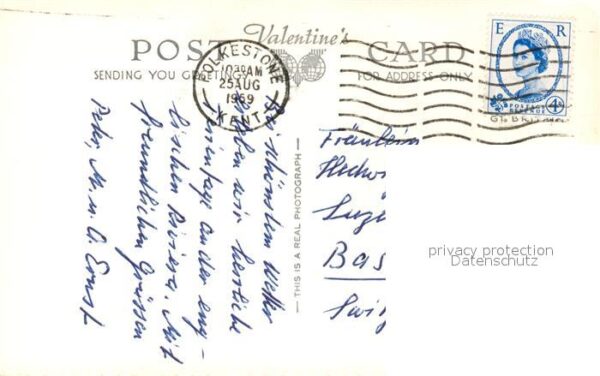 Valentine's
POST CARD
SENDING YOU GREETINGS
FOR ADDRESS ONLY
FOLKESTONE
10 30 AM
25 AUG
1969
KENT
E R
POSTAGE
REVENUE
4D
GT. BRIT
THIS IS A REAL PHOTOGRAPH
Bei schönstem Wetter
leben wir herrliche
Ferientage an der eng-
lischen Riviera. Mit
freundlichen Grüssen
M. u. A. Ernst
Fräulein
Hedw
Luze
Bas
privacy protection
Datenschutz